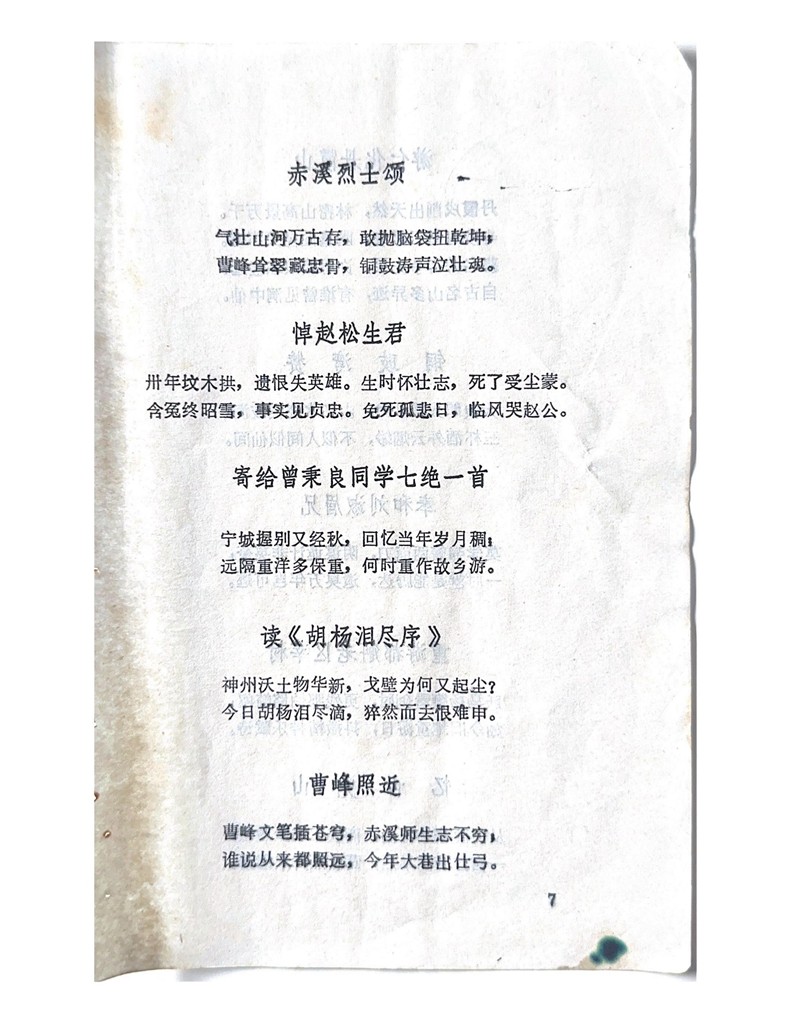 赤溪烈士颂
气壮山河万古存，敢抛脑袋扭乾坤；
曹峰耸翠藏忠骨，铜鼓涛声泣壮魂。
悼赵松生君
卅年坟木拱，遗恨失英雄。生时怀壮志，死了受尘蒙。
含冤终昭雪，事实见贞忠。兔死孤悲日，临风哭赵公。
寄给曾秉良同学七绝一首
宁城握别又经秋，回忆当年岁月稠；
远隔重洋多保重，何时重作故乡游。
读《胡杨泪尽序》
神州沃土物华新，戈壁为何又起尘？
今日胡杨泪尽滴，猝然而去恨难申。
曹峰照近
曹峰文笔插苍穹，赤溪师生志不穷；
谁说从来都照远，今年大巷出仕弓。
7